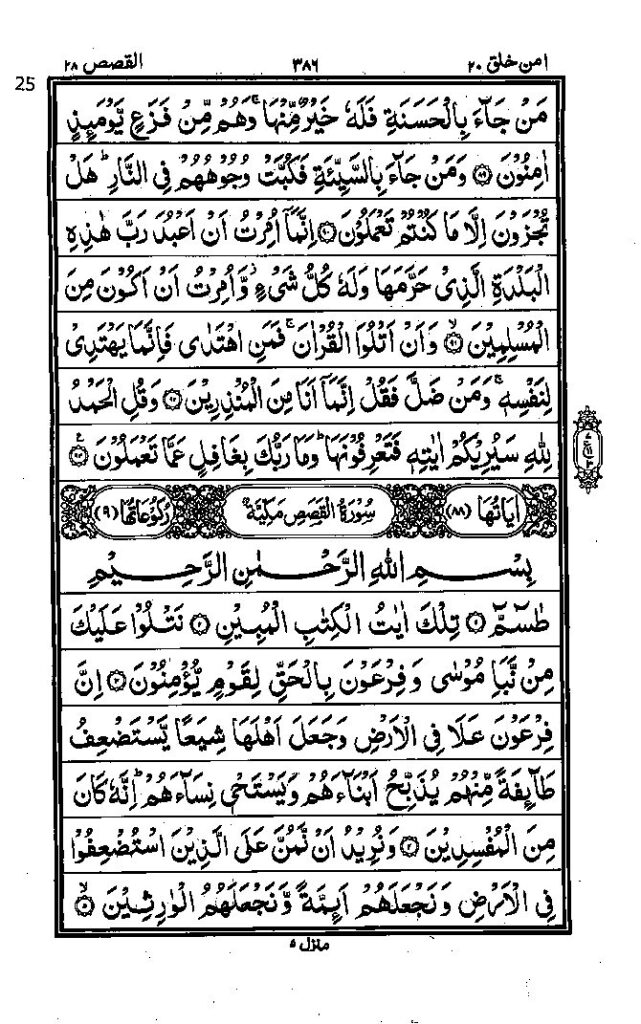 امن خلق ٢٠ ٣٨٦ القصص ٢٨
25
مَنْ جَآءَ بِالْحَسَنَةِ فَلَهٗ خَيْرٌ مِّنْهَا ۚ وَهُمْ مِّنْ فَزَعٍ يَّوْمَىِٕذٍ
اٰمِنُوْنَ ۝٨٩ وَمَنْ جَآءَ بِالسَّيِّئَةِ فَكُبَّتْ وُجُوْهُهُمْ فِى النَّارِ ؕ هَلْ
تُجْزَوْنَ اِلَّا مَا كُنْتُمْ تَعْمَلُوْنَ ۝٩٠ اِنَّمَآ اُمِرْتُ اَنْ اَعْبُدَ رَبَّ هٰذِهِ
الْبَلْدَةِ الَّذِىْ حَرَّمَهَا وَلَهٗ كُلُّ شَىْءٍ ؗ وَّاُمِرْتُ اَنْ اَكُوْنَ مِنَ
الْمُسْلِمِيْنَ ۝٩١ۙ وَاَنْ اَتْلُوَا الْقُرْاٰنَ ۚ فَمَنِ اهْتَدٰى فَاِنَّمَا يَهْتَدِىْ
لِنَفْسِهٖ ۚ وَمَنْ ضَلَّ فَقُلْ اِنَّمَآ اَنَا مِنَ الْمُنْذِرِيْنَ ۝٩٢ وَقُلِ الْحَمْدُ
لِلّٰهِ سَيُرِيْكُمْ اٰيٰتِهٖ فَتَعْرِفُوْنَهَا ؕ وَمَا رَبُّكَ بِغَافِلٍ عَمَّا تَعْمَلُوْنَ ۝٩٣
اٰيَاتُهَا (٨٨) سُوْرَةُ الْقَصَصِ مَكِّيَّةٌ رُكُوْعَاتُهَا (٩)
بِسْمِ اللّٰهِ الرَّحْمٰنِ الرَّحِيْمِ
طٰسٓمّٓ ۝١ تِلْكَ اٰيٰتُ الْكِتٰبِ الْمُبِيْنِ ۝٢ نَتْلُوْا عَلَيْكَ
مِنْ نَّبَاِ مُوْسٰى وَفِرْعَوْنَ بِالْحَقِّ لِقَوْمٍ يُّؤْمِنُوْنَ ۝٣ اِنَّ
فِرْعَوْنَ عَلَا فِى الْاَرْضِ وَجَعَلَ اَهْلَهَا شِيَعًا يَّسْتَضْعِفُ
طَآىِٕفَةً مِّنْهُمْ يُذَبِّحُ اَبْنَآءَهُمْ وَيَسْتَحْىٖ نِسَآءَهُمْ ؕ اِنَّهٗ كَانَ
مِنَ الْمُفْسِدِيْنَ ۝٤ وَنُرِيْدُ اَنْ نَّمُنَّ عَلَى الَّذِيْنَ اسْتُضْعِفُوْا
فِى الْاَرْضِ وَنَجْعَلَهُمْ اَىِٕمَّةً وَّنَجْعَلَهُمُ الْوٰرِثِيْنَ ۝٥ۙ
منزل ٥